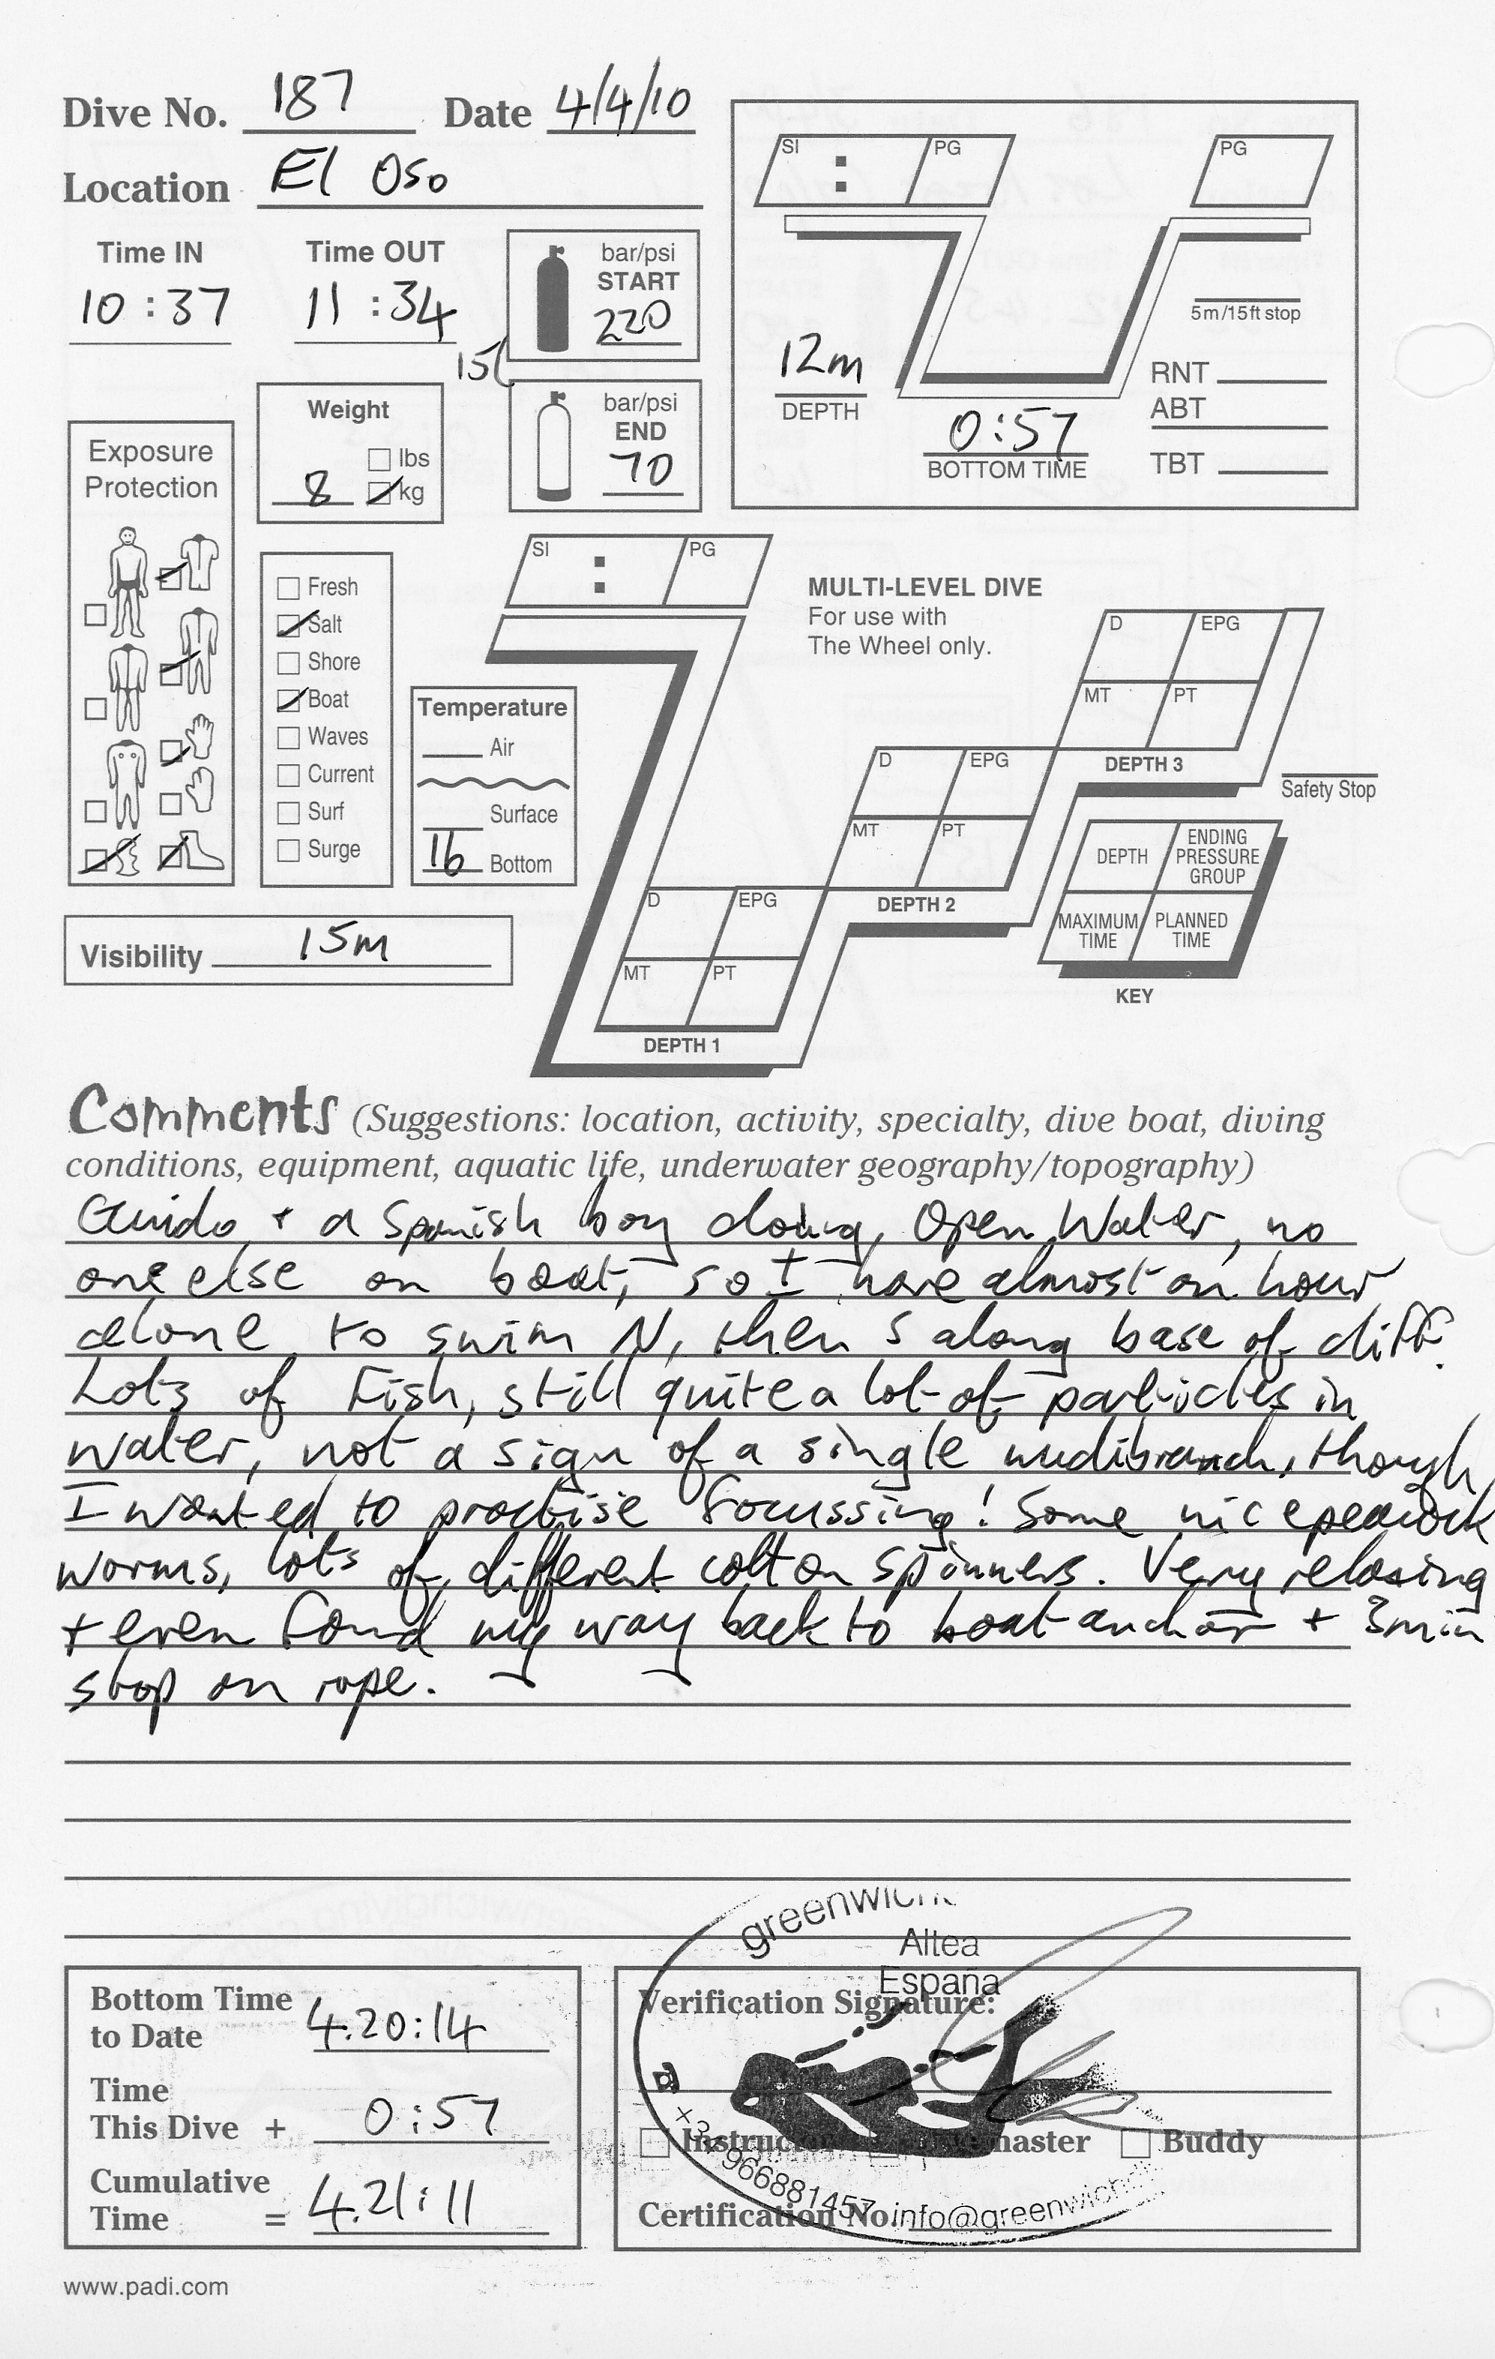 Dive No. 187 Date 4/4/10
Location El Oso
Time IN Time OUT
10:37 11:34
bar/psi
START
220
15l
bar/psi
END
70
Weight
lbs
8 kg
Exposure
Protection
Fresh
Salt
Shore
Boat
Waves
Current
Surf
Surge
Temperature
Air
Surface
16 Bottom
Visibility 15m
SI : PG PG
5m/15ft stop
12m
DEPTH
0:57
BOTTOM TIME
RNT
ABT
TBT
SI : PG
MULTI-LEVEL DIVE
For use with
The Wheel only.
D EPG
MT PT
DEPTH 3
Safety Stop
D EPG
MT PT
DEPTH 2
D EPG
MT PT
DEPTH 1
DEPTH ENDING PRESSURE GROUP
MAXIMUM TIME PLANNED TIME
KEY
Comments (Suggestions: location, activity, specialty, dive boat, diving
conditions, equipment, aquatic life, underwater geography/topography)
Guido + a Spanish boy doing Open Water, no
one else on boat, so I have almost an hour
alone to swim N, then S along base of cliff.
Lots of fish, still quite a lot of particles in
water, not a sign of a single nudibranch, though
I wanted to practise focussing! Some nice peacock
worms, lots of different cotton spinners. Very relaxing
+ even found my way back to boat anchor + 3min
stop on rope.
greenwich
Altea
España
Bottom Time
to Date 4.20:14
Time
This Dive + 0:57
Cumulative
Time = 4.21:11
Verification Signature:
Instructor master Buddy
Certification No.
+34 966881457 info@greenwichd
www.padi.com